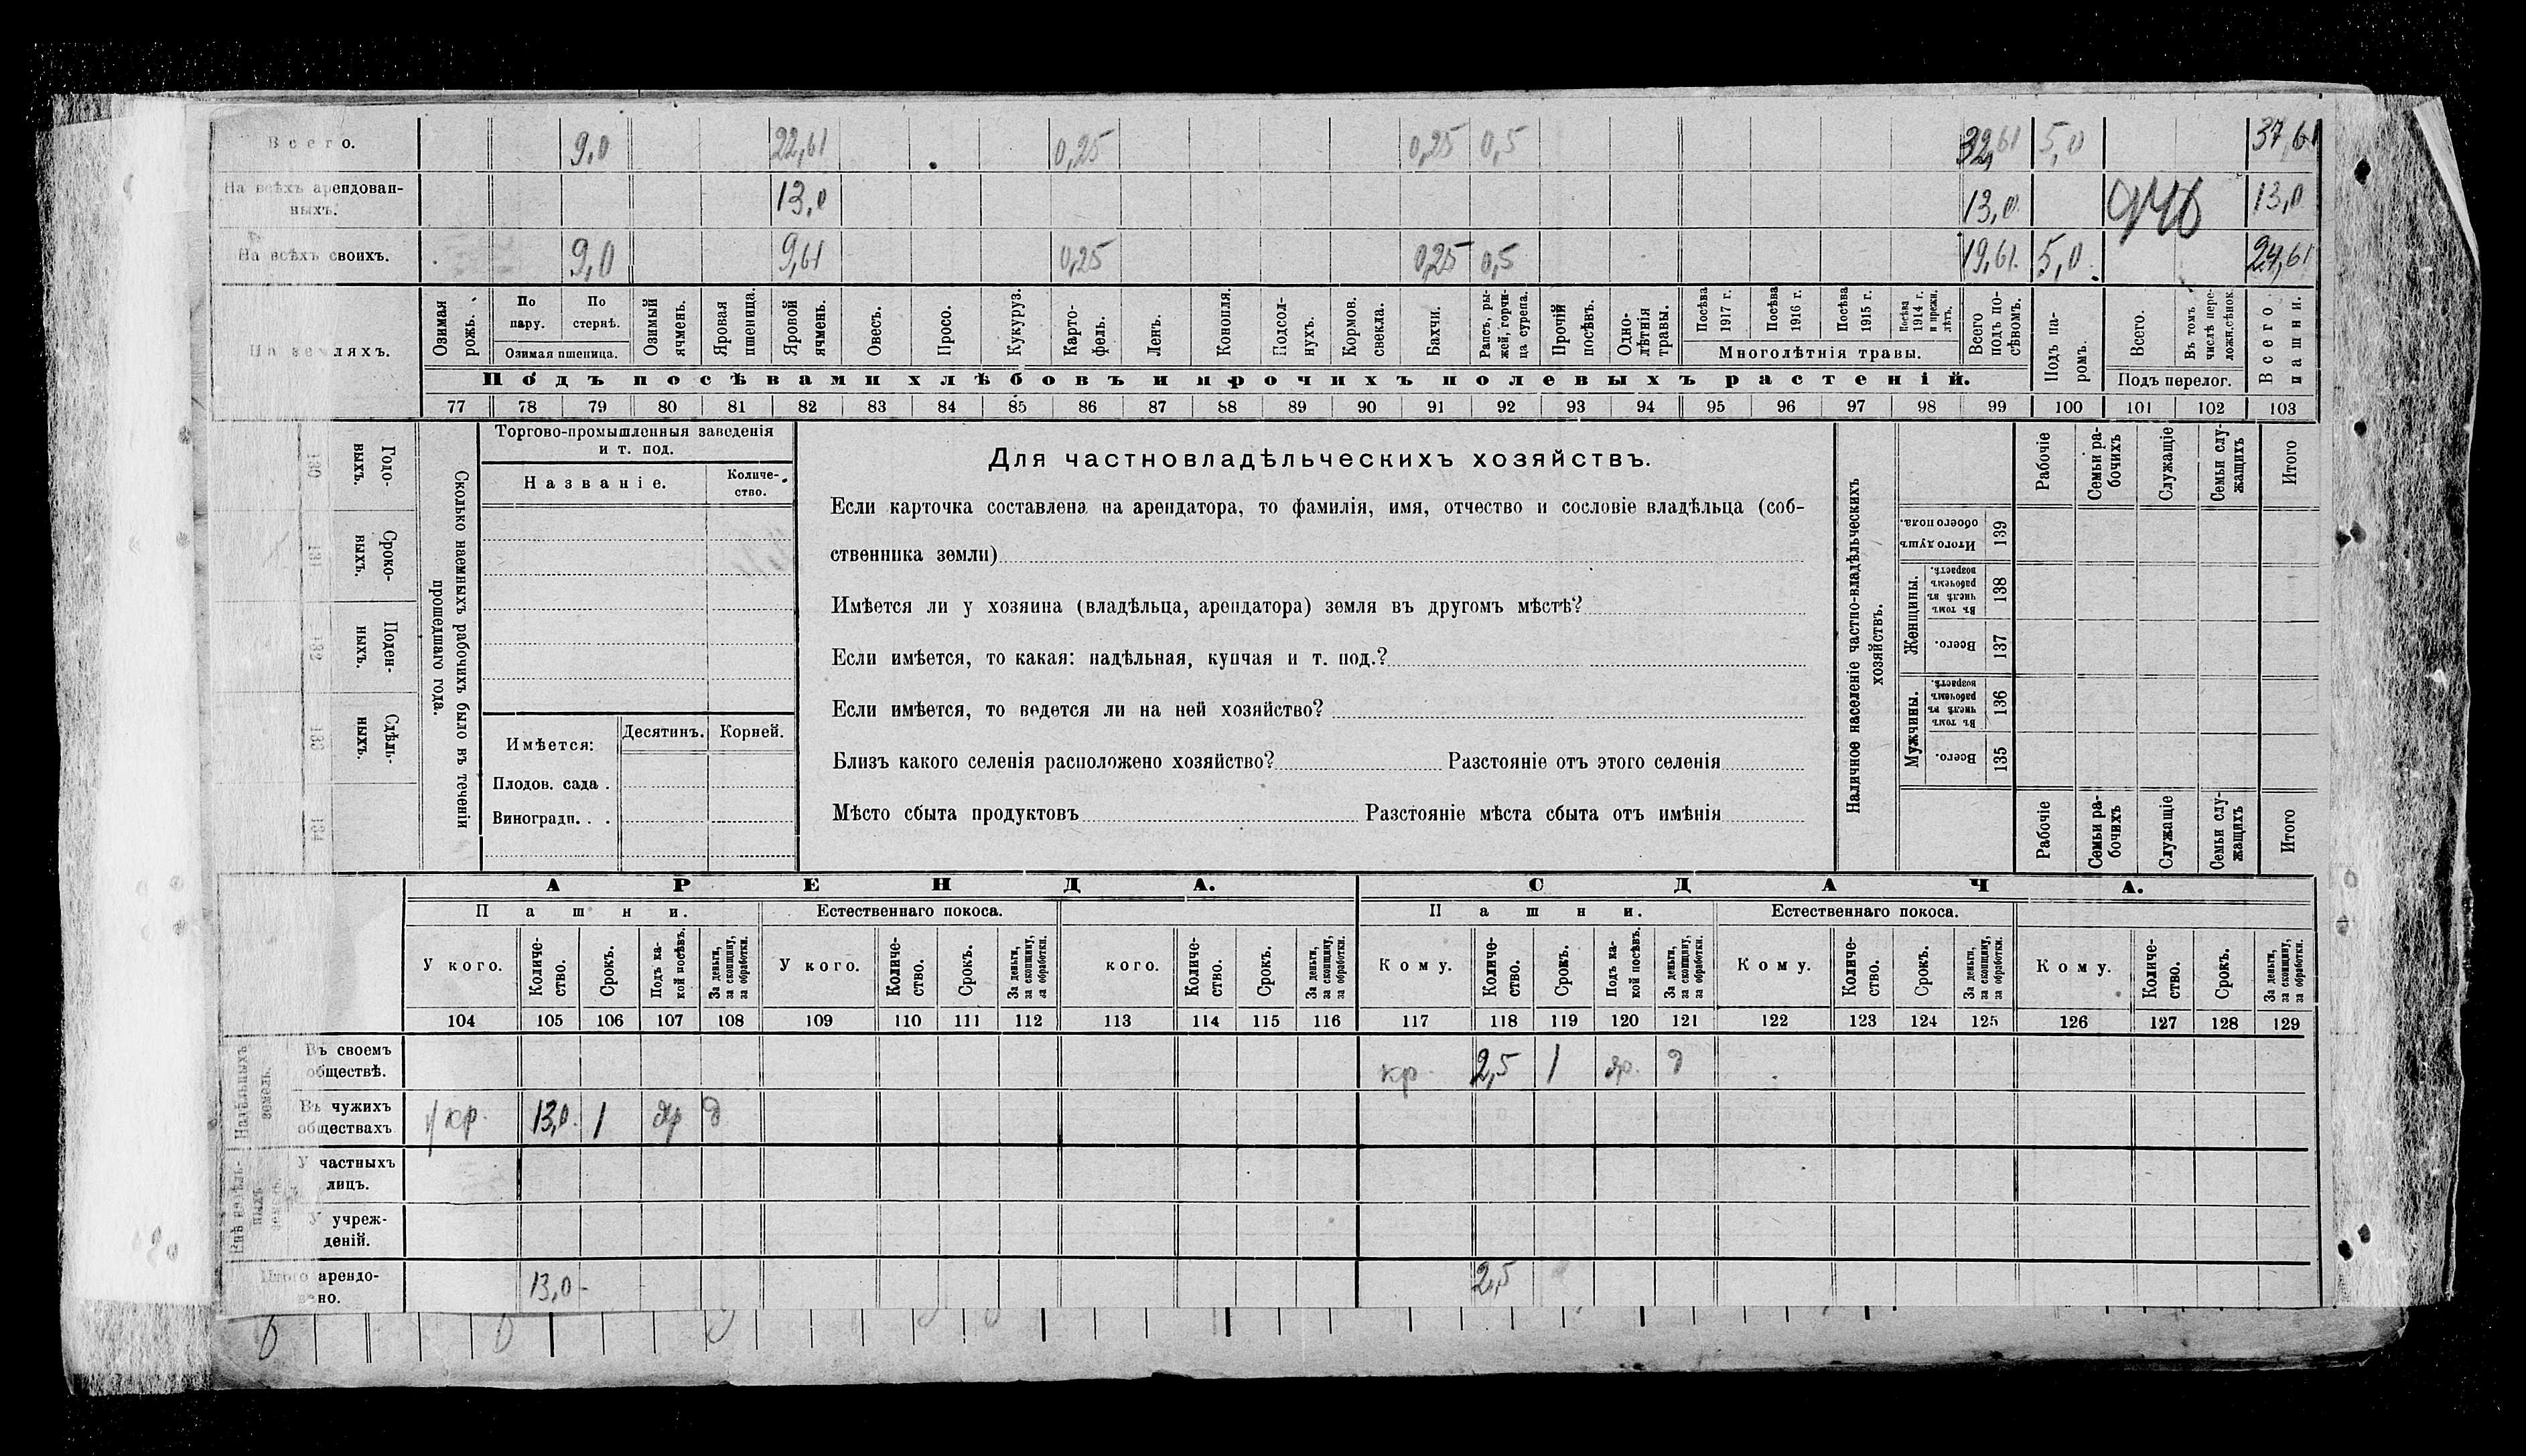 Всего. 9,0 22,61 0,25 0,25 0,5 32,61 5,0 37,61
На всѣхъ арендован-
ныхъ. 13,0 13,0 13,0
На всѣхъ своихъ. 9,0 9,61 0,25 0,25 0,5 19,61 5,0 24,61
На земляхъ.
Озимая рожь.
По пару.
По стернѣ.
Озимая пшеница.
Озимый ячмень.
Яровая пшеница.
Яровой ячмень.
Овесъ.
Просо.
Кукуруз.
Карто-
фель.
Ленъ.
Конопля.
Подсол-
нухъ.
Кормов.
свекла.
Бахчи.
Рапсъ, ры-
жей, горчи-
ца сурепа.
Прочій
посѣвъ.
Одно-
лѣтнія
травы.
Посѣва
1917 г.
Посѣва
1916 г.
Посѣва
1915 г.
Посѣва
1914 г.
и прежн.
лѣтъ.
Многолѣтнія травы.
Всего
подъ по-
сѣвомъ.
Подъ па-
ромъ.
Всего.
Въ томъ
числѣ пере-
ложн.сѣнок.
Подъ перелог.
Всего
пашни.
Подъ посѣвами хлѣбовъ и прочихъ полевыхъ растеній.
77 78 79 80 81 82 83 84 85 86 87 88 89 90 91 92 93 94 95 96 97 98 99 100 101 102 103
Годо-
выхъ.
Сроко-
ныхъ.
Поден-
ныхъ.
Сдѣль-
ныхъ.
130
131
132
133
134
Сколько наемныхъ рабочихъ было въ теченіи
прошедшаго года.
Торгово-промышленныя заведенія
и т. под.
Названіе.
Количе-
ство.
Имѣется:
Десятинъ.
Корней.
Плодов. сада .
Виноградн. . .
Для частновладѣльческихъ хозяйствъ.
Если карточка составлена на арендатора, то фамилія, имя, отчество и сословіе владѣльца (соб-
ственника земли)
Имѣется ли у хозяина (владѣльца, арендатора) земля въ другомъ мѣстѣ?
Если имѣется, то какая: надѣльная, купчая и т. под.?
Если имѣется, то ведется ли на ней хозяйство?
Близъ какого селенія расположено хозяйство? Разстояніе отъ этого селенія
Мѣсто сбыта продуктовъ Разстояніе мѣста сбыта отъ имѣнія
Наличное населеніе частно-владѣльческихъ
хозяйствъ.
Рабочіе
Семьи ра-
бочихъ
Служащіе
Семьи слу-
жащихъ
Итого
Итого душъ
обоего пола.
139
Женщины.
Въ томъ
числѣ въ
рабочемъ
возрастѣ.
138
Всего.
137
Мужчины.
Въ томъ
числѣ въ
рабочемъ
возрастѣ.
136
Всего.
135
Рабочіе
Семьи ра-
бочихъ
Служащіе
Семьи слу-
жащихъ
Итого
АРЕНДА. СДАЧА.
Пашни. Естественнаго покоса. Пашни. Естественнаго покоса.
У кого.
Количе-
ство.
Срокъ.
Подъ ка-
кой посѣвъ.
За деньги,
за скопщину,
за обработки.
У кого.
Количе-
ство.
Срокъ.
За деньги,
за скопщину,
за обработки.
кого.
Количе-
ство.
Срокъ.
За деньги,
за скопщину,
за обработки.
Кому.
Количе-
ство.
Срокъ.
Подъ ка-
кой посѣвъ.
За деньги,
за скопщину,
за обработки.
Кому.
Количе-
ство.
Срокъ.
За деньги,
за скопщину,
за обработки.
Кому.
Количе-
ство.
Срокъ.
За деньги,
за скопщину,
за обработки.
104 105 106 107 108 109 110 111 112 113 114 115 116 117 118 119 120 121 122 123 124 125 126 127 128 129
Надѣльныхъ
земель.
Въ своемъ
обществѣ. кр. 2,5 1 яр. д
Въ чужихъ
обществахъ кр. 13,0. 1 яр д
Внѣ надѣль-
ныхъ
У частныхъ
лицъ.
У учреж-
деній.
Итого арендо-
вено. 13,0- 2,5